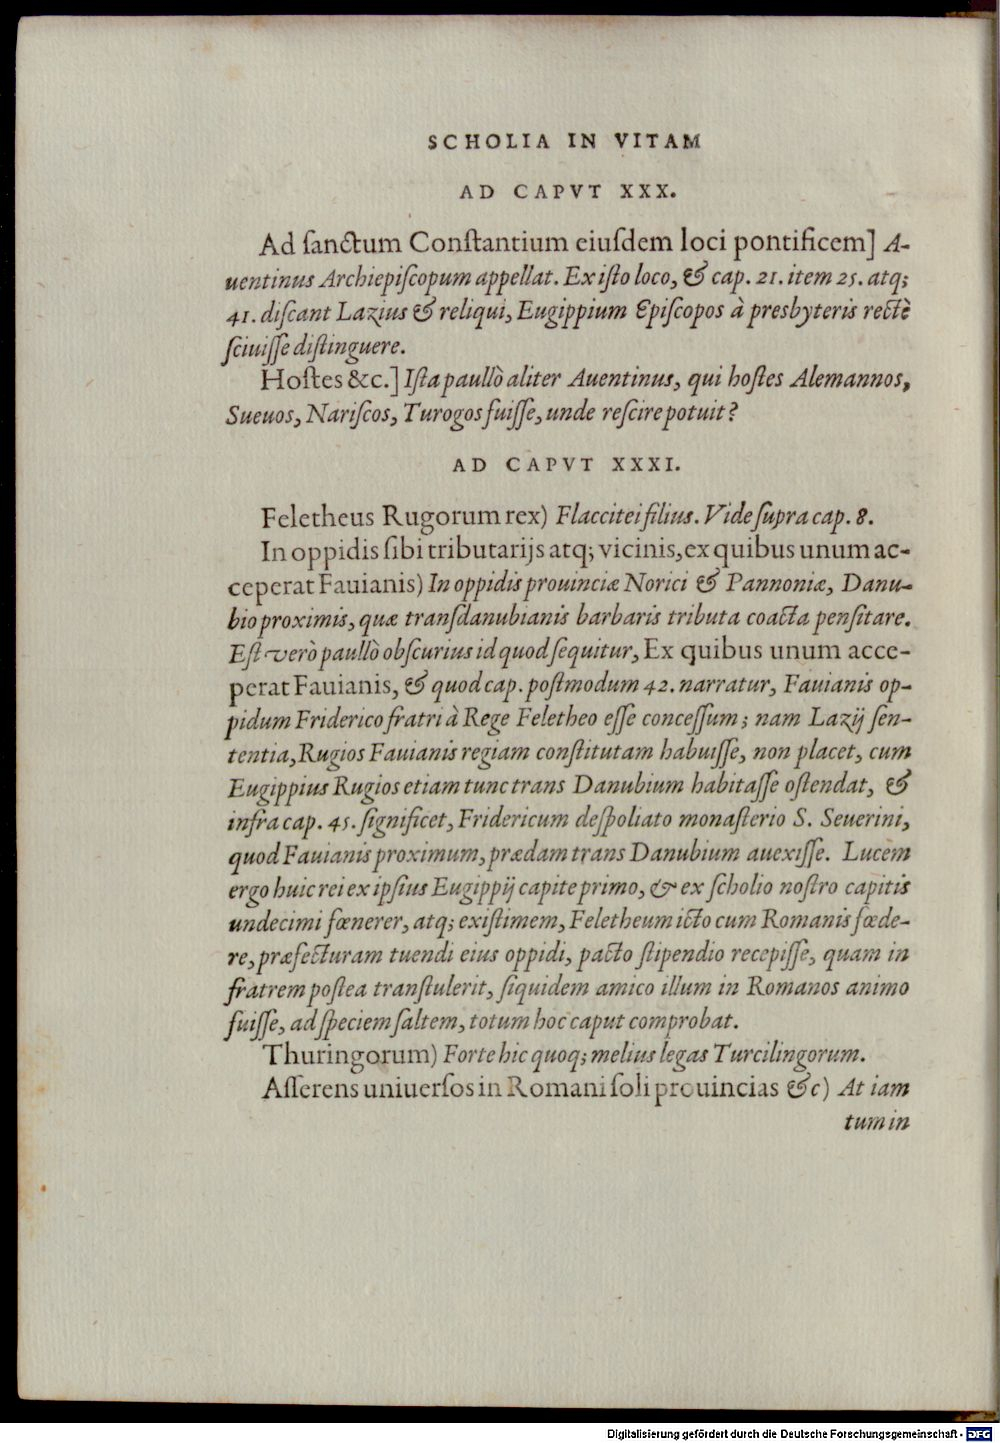 SCHOLIA IN VITAM
AD CAPVT XXX.
Ad ſanctum Conſtantium eiuſdem loci pontificem] A-
uentinus Archiepiſcopum appellat. Ex iſto loco, & cap. 21. item 25. atq;
41. diſcant Lazius & reliqui, Eugippium Epiſcopos à presbyteris rectè
ſciuiſſe diſtinguere.
Hoſtes &c.] Iſta paullò aliter Auentinus, qui hoſtes Alemannos,
Sueuos, Nariſcos, Turogos fuiſſe, unde reſcire potuit?
AD CAPVT XXXI.
Feletheus Rugorum rex) Flaccitei filius. Vide ſupra cap. 8.
In oppidis ſibi tributarijs atq; vicinis, ex quibus unum ac-
ceperat Fauianis) In oppidis prouinciæ Norici & Pannoniæ, Danu-
bio proximis, quæ tranſdanubianis barbaris tributa coacta penſitare.
Eſt verò paullò obſcurius id quod ſequitur, Ex quibus unum acce-
perat Fauianis, & quod cap. poſtmodum 42. narratur, Fauianis op-
pidum Friderico fratri à Rege Feletheo eſſe conceſſum; nam Lazij ſen-
tentia, Rugios Fauianis regiam conſtitutam habuiſſe, non placet, cum
Eugippius Rugios etiam tunc trans Danubium habitaſſe oſtendat, &
infra cap. 45. ſignificet, Fridericum deſpoliato monaſterio S. Seuerini,
quod Fauianis proximum, prædam trans Danubium auexiſſe. Lucem
ergo huic rei ex ipſius Eugippij capite primo, & ex ſcholio noſtro capitis
undecimi fœnerer, atq; exiſtimem, Feletheum icto cum Romanis fœde-
re, præfecturam tuendi eius oppidi, pacto ſtipendio recepiſſe, quam in
fratrem poſtea tranſtulerit, ſiquidem amico illum in Romanos animo
fuiſſe, ad ſpeciem ſaltem, totum hoc caput comprobat.
Thuringorum) Forte hic quoq; melius legas Turcilingorum.
Aſſerens uniuerſos in Romani ſoli prouincias &c) At iam
tum in
Digitalisierung gefördert durch die Deutsche Forschungsgemeinschaft - DFG